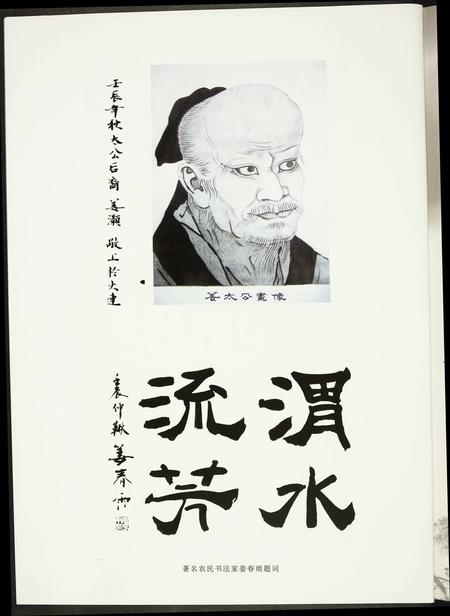 壬辰年秋太公后裔姜濒敬上於大连
姜太公畫像
渭水
流芳
壬辰仲秋姜春雨
著名农民书法家姜春雨题词